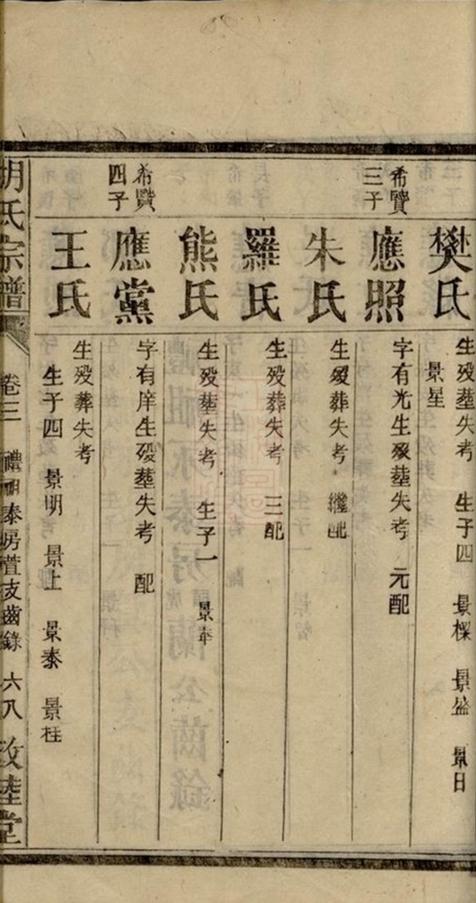 樊氏
生殁塟失考 生子四 景櫟 景盛 景日
景星
希賢三子
應照
字有光生殁塟失考 元配
朱氏
生殁葬失考 繼配
羅氏
生殁葬失考 三配
熊氏
生殁塟失考 生子一 景奉
希賢四子
應黨
字有庠生殁塟失考 配
王氏
生殁葬失考
生子四 景明 景上 景泰 景柱
胡氏宗譜 卷三 禮祖泰房萱支齒錄 六八 敦睦堂